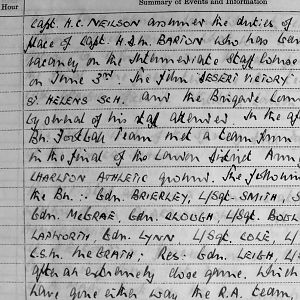 Hour
Summary of Events and Information
Capt. H.C. NEILSON assumes the duties of
place of Capt. H.S.M. BARTON who has
vacancy on the Intermediate Staff Course
on June 3rd. The film DESERT VICTORY
ST HELENS SCH. and the Brigade Com
by of his attended. In the
Bn. Football Team met a team from
in the final of the London District
CHARLTON ATHLETIC ground. The following
the Bn:- Gdn. BRIERLEY, L/Sgt. SMITH, S
Gdn. McGRAE, Gdn. CLOUGH, L/Sgt.
LAPWORTH, Gdn. LYNN, L/Sgt. COLE, L/
C.S.M. McGRATH; Res: Gdn. LEIGH, L/
after an extremely close game. Which
have gone either way the R.A. team,